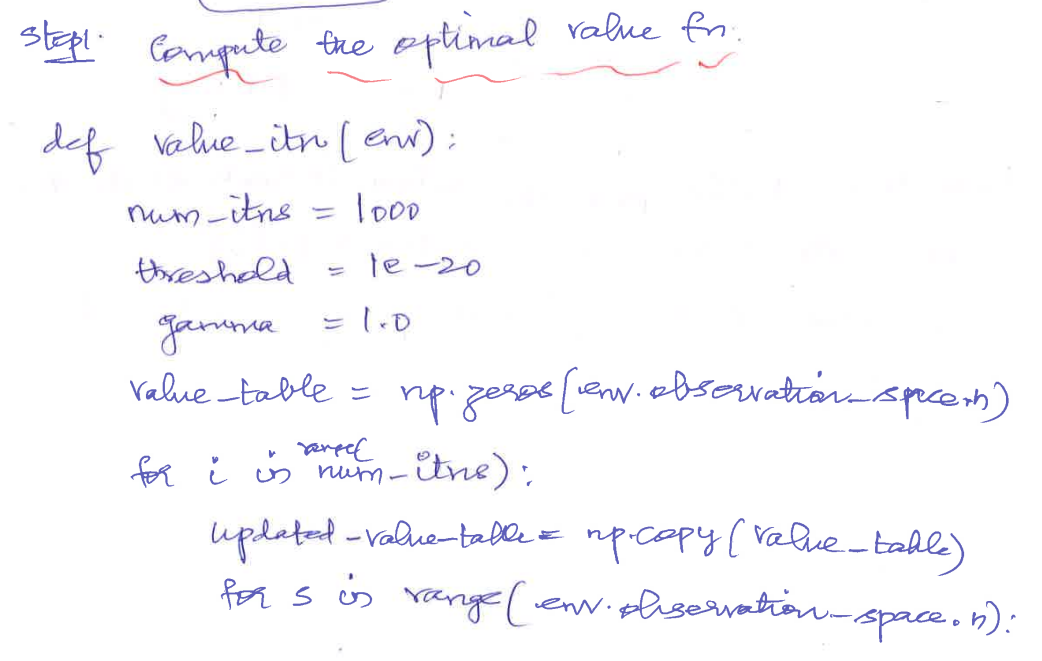 Step1. Compute the optimal value fn.
def value_itn(env):
num_itns = 1000
threshold = 1e-20
gamma = 1.0
value_table = np.zeros(env.observation_spce.n)
for i in range(num-itns):
updated-value-table = np.copy(value_table)
for s in range(env.observation_space.n):